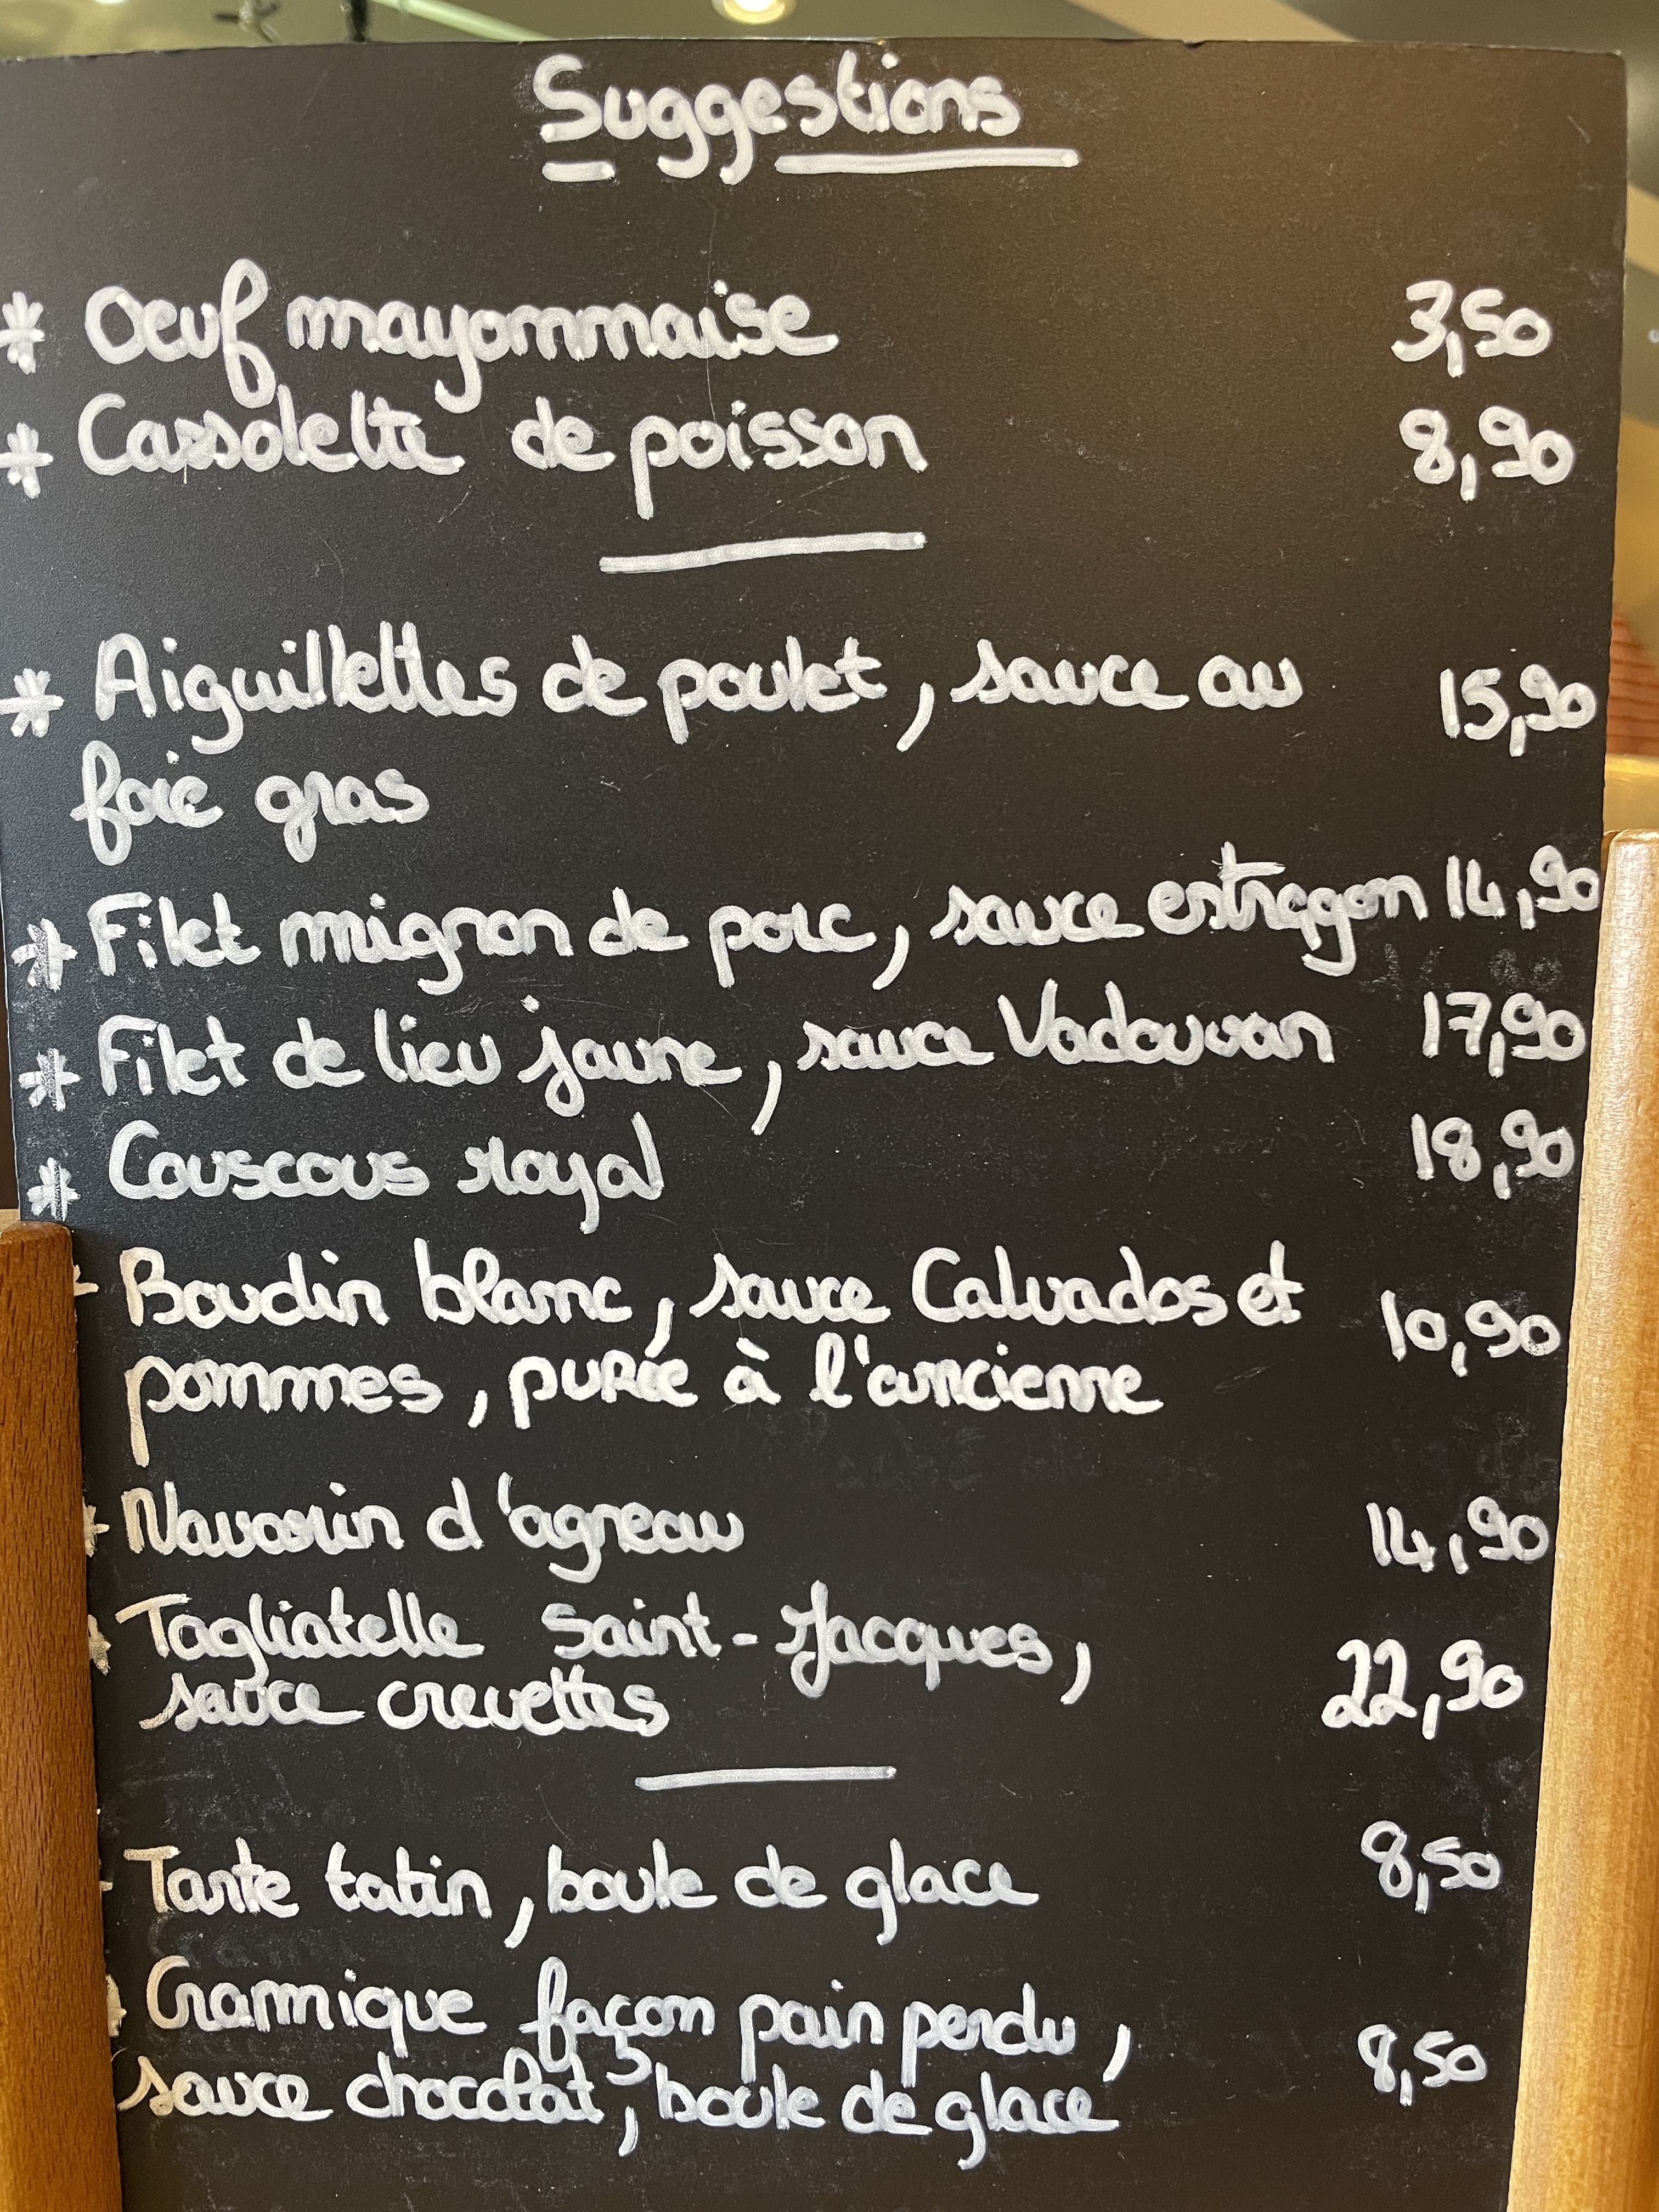 Suggestions
* Oeuf mayonnaise 3,50
* Cassolette de poisson 8,90
* Aiguillettes de poulet, sauce au 15,90
foie gras
* Filet mignon de porc, sauce estragon 14,90
* Filet de lieu jaune, sauce Vadouvan 17,90
* Couscous royal 18,90
* Boudin blanc, sauce Calvados et 10,90
pommes, purée à l'ancienne
* Navarin d'agneau 14,90
* Tagliatelle Saint-Jacques,
sauce crevettes 22,90
* Tarte tatin, boule de glace 8,50
* Cramique façon pain perdu,
sauce chocolat, boule de glace 8,50